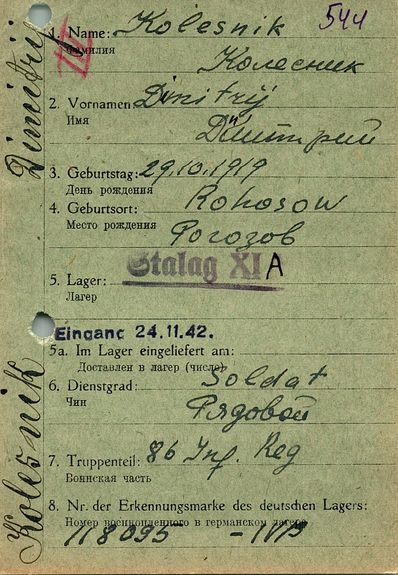 544
1. Name: Kolesnik
Фамилия
Колесник
2. Vornamen Dmitrij
Имя
Дмитрий
3. Geburtstag: 29.10.1919
День рождения
4. Geburtsort: Rohosow
Место рождения
Рогозов
Stalag XI A
5. Lager:
Лагерь
Eingang 24.11.42.
5a. Im Lager eingeliefert am:
Доставлен в лагерь (число)
6. Dienstgrad: Soldat
Чин
Рядовой
7. Truppenteil: 86 Inf. Reg
Воинская часть
8. Nr. der Erkennungsmarke des deutschen Lagers:
Номер военнопленного в германском лагере
118095 – IVB
Kolesnik Dimitrij